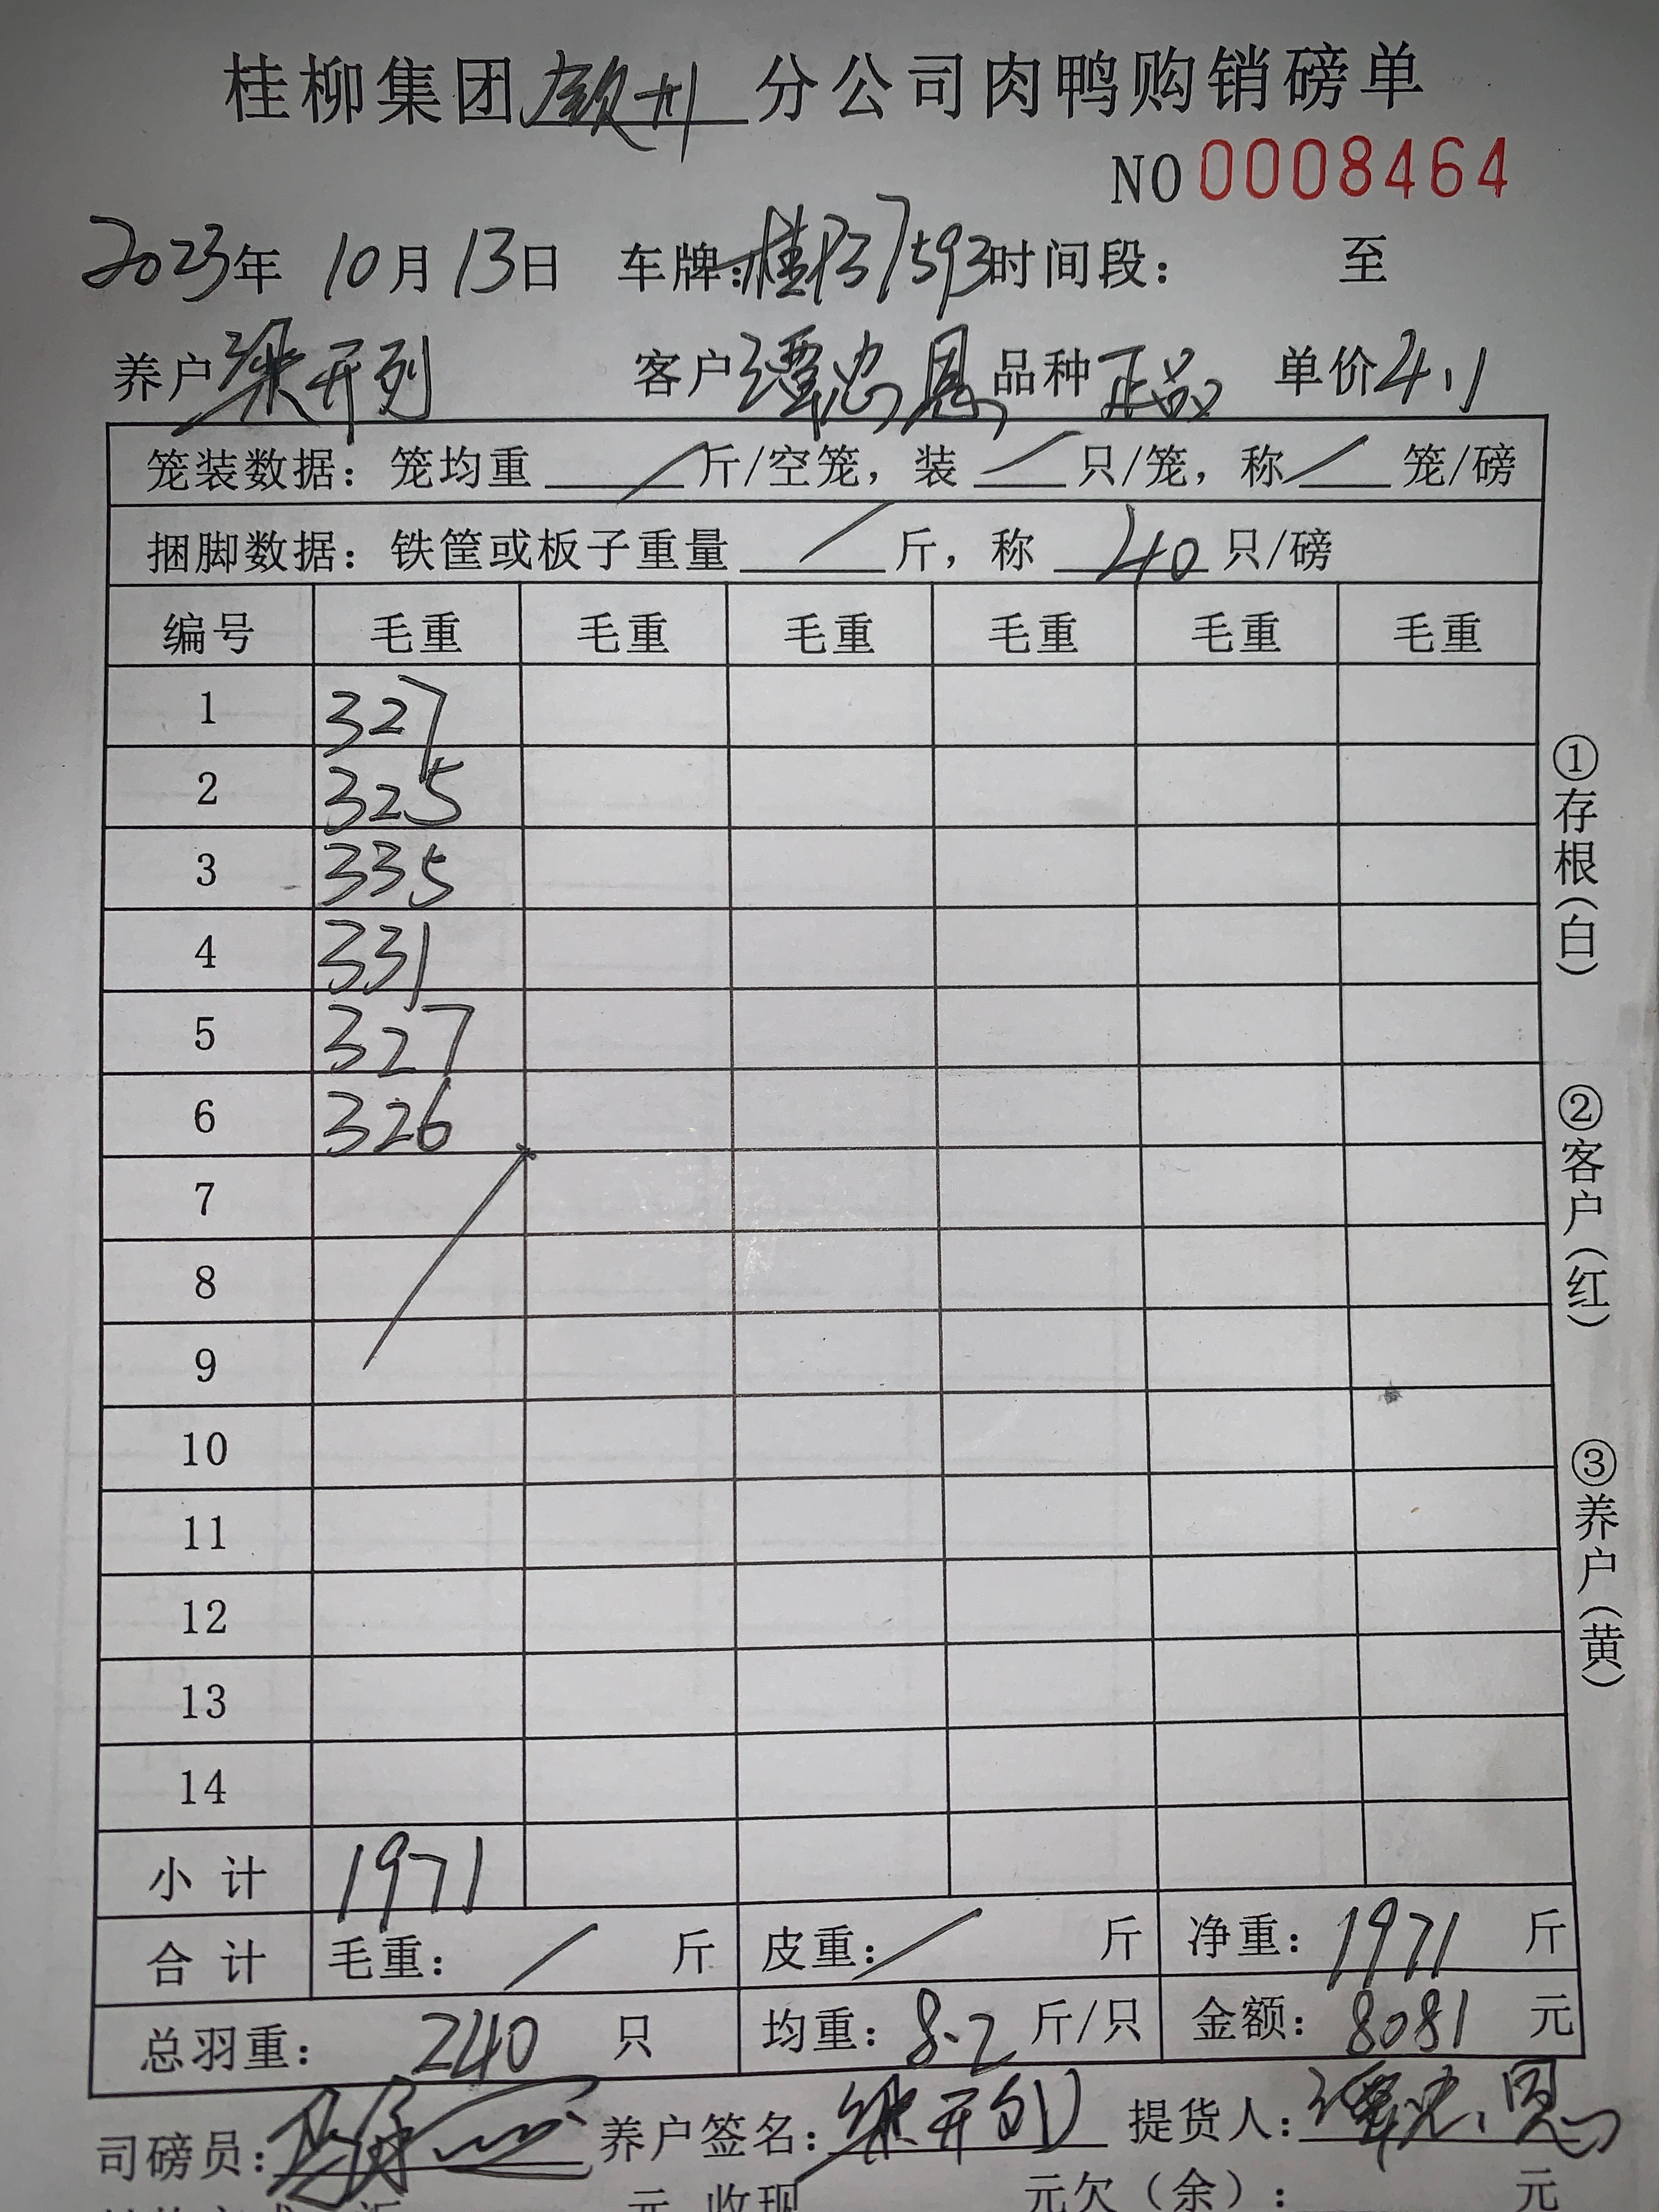 桂柳集团钦州分公司肉鸭购销磅单
NO 0008464
2023年 10月 13日 车牌:桂 37593 时间段: 至
养户 梁开列 客户 谭忠恩 品种 正品 单价 4.1
笼装数据: 笼均重 / 斤/空笼, 装 / 只/笼, 称 / 笼/磅
捆脚数据: 铁筐或板子重量 / 斤, 称 40 只/磅
编号 毛重 毛重 毛重 毛重 毛重 毛重
1 327
2 325
3 335
4 331
5 327
6 326
7
8
9
10
11
12
13
14
小 计 1971
合 计 毛重: / 斤 皮重: / 斤 净重: 1971 斤
总羽重: 240 只 均重: 8.2 斤/只 金额: 8081 元
司磅员: 养户签名: 梁开列 提货人: 谭忠恩
元 收现 元欠(余): 元
①存根(白)
②客户(红)
③养户(黄)